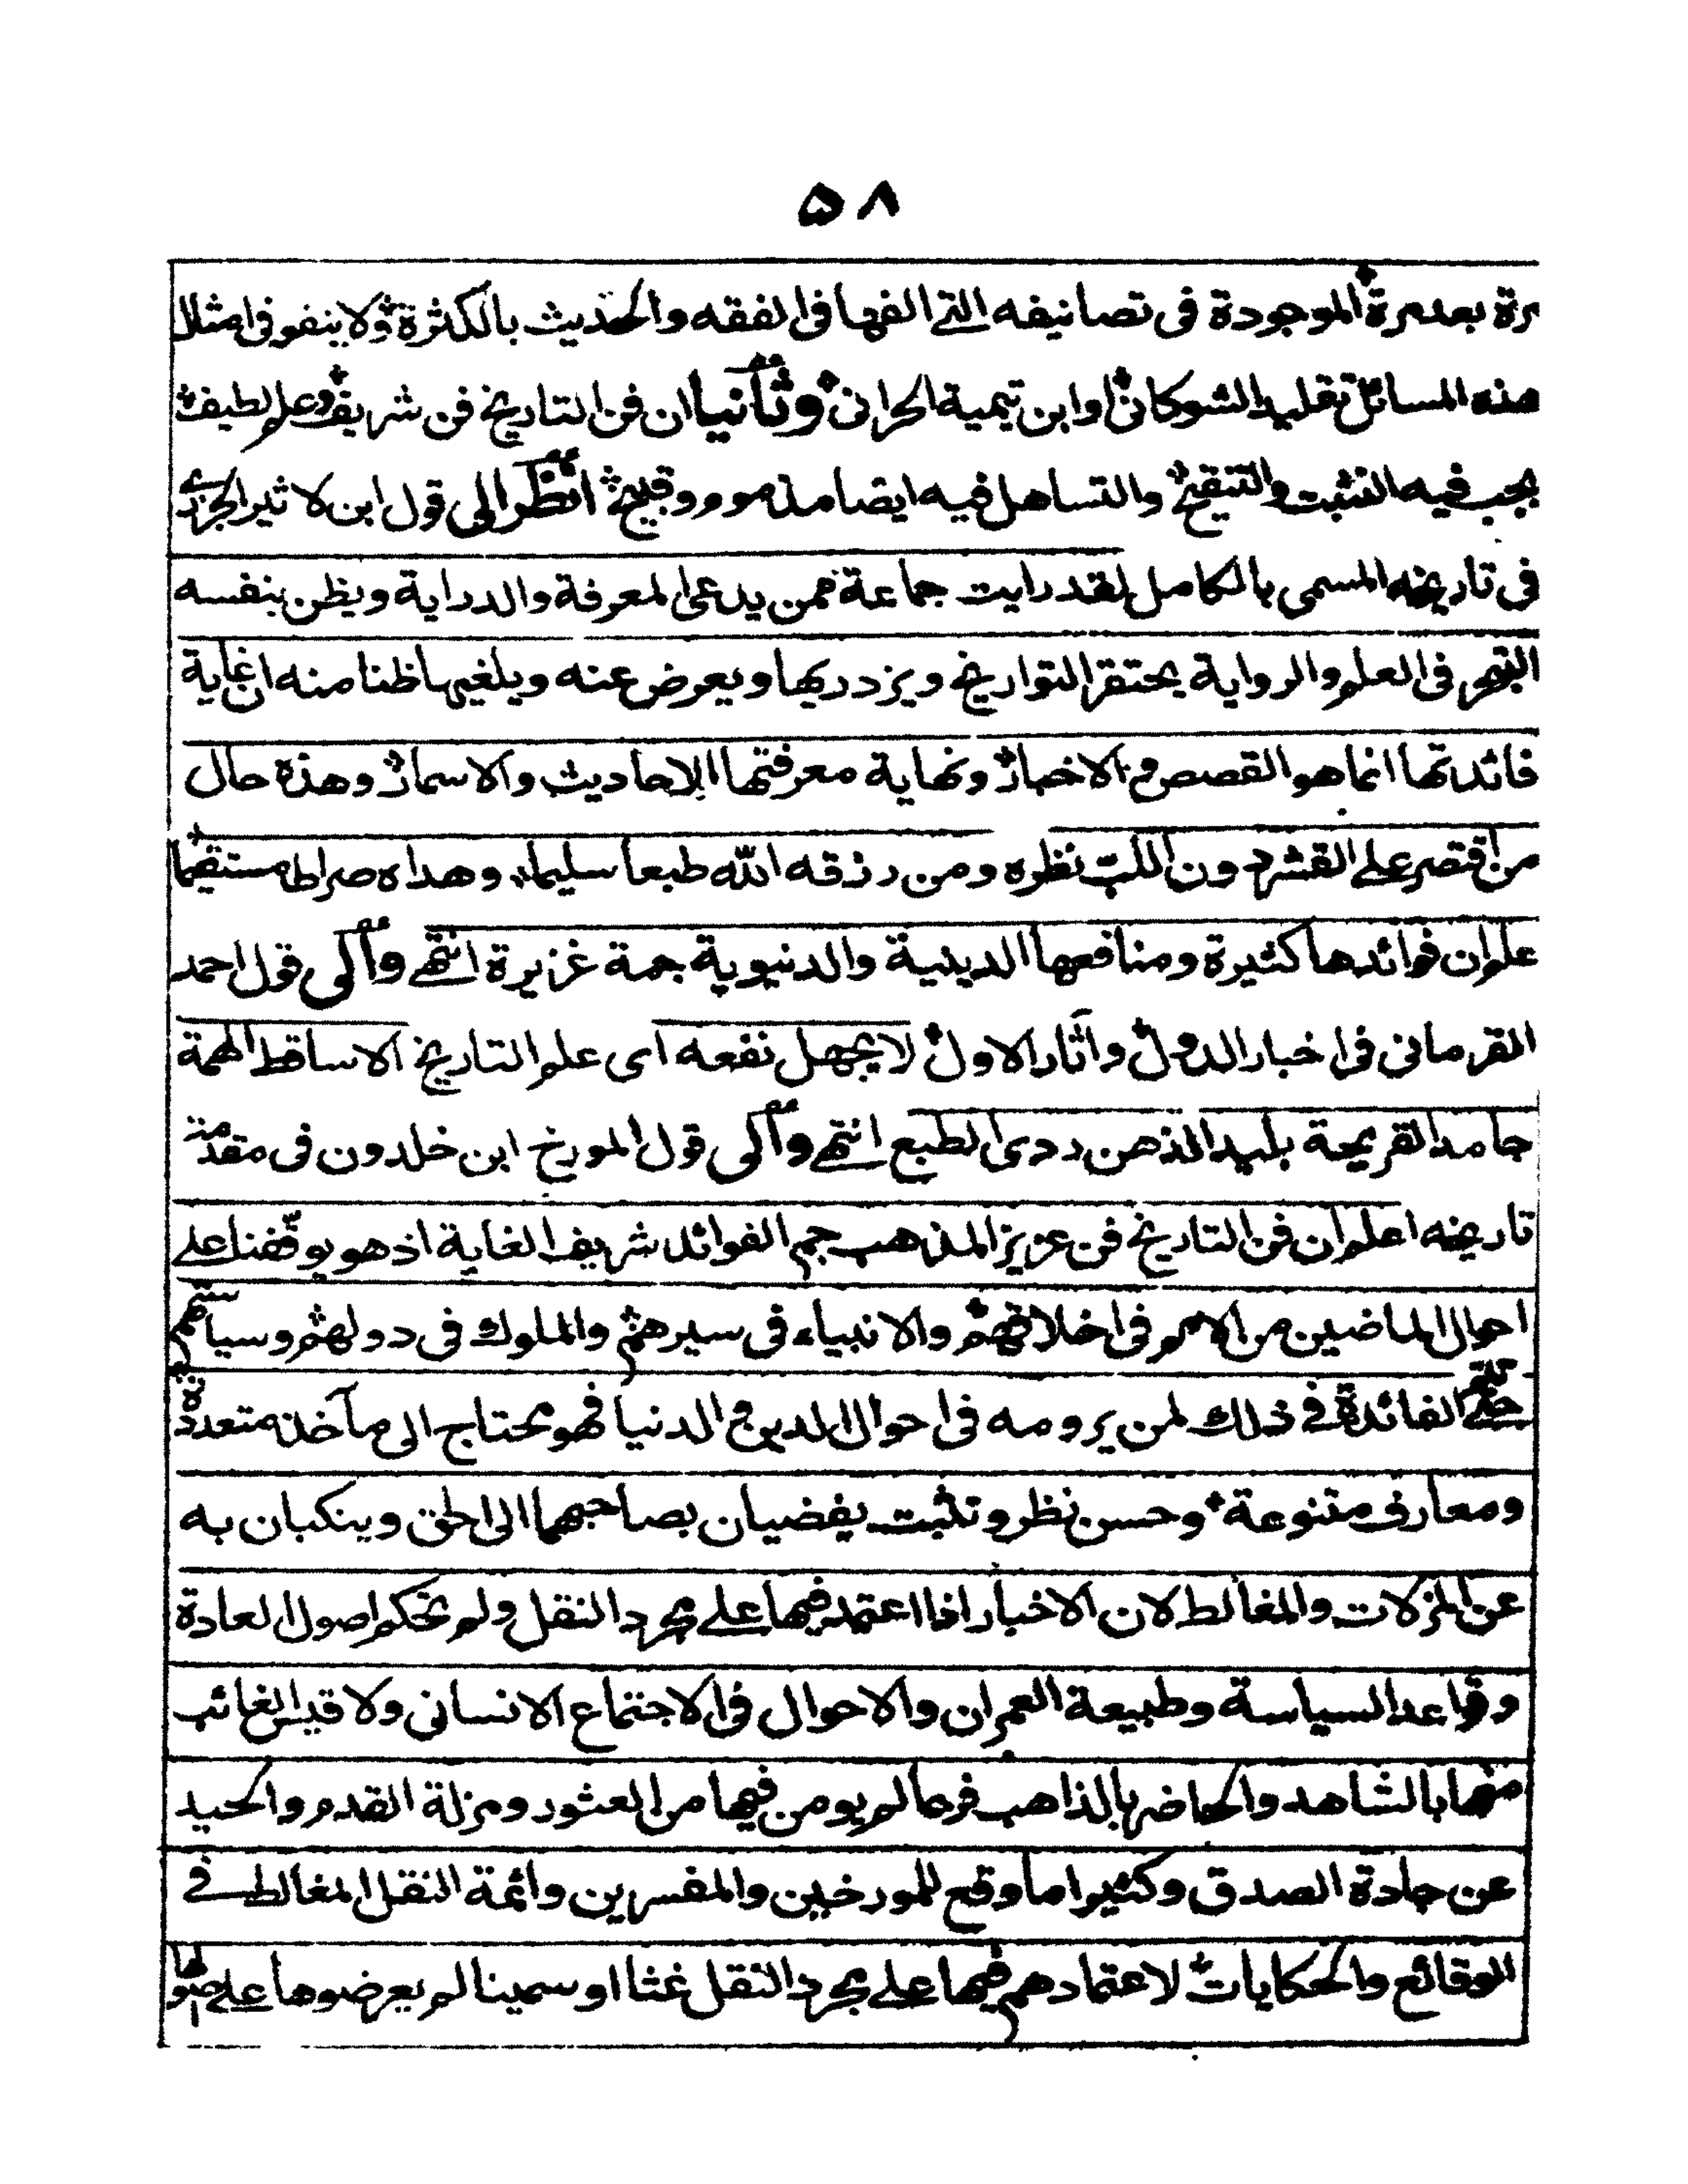 ۵۸
مرة بعد مرة الموجودة فى تصانيفه التے الفها فى الفقه والحديث بالكثرة ولا ينفو فى امثال
هذه المسائل تقليد الشوكانى او ابن تيمية الحرانى وثانيا ان فن التاريخ فن شريف وعلم لطيف
يجب فيه التثبت والتنقيح والتساهل فيه ايضا مذموم وقبيح انظر الى قول ابن لاثير الجزرے
فى تاريخه المسمى بالكامل لقد رايت جماعة ممن يدعى المعرفة والدراية ويظن بنفسه
التبحر فى العلم والرواية يحتقر التواريخ ويزدريها ويعرض عنه ويلغيها ظنا منه ان غاية
فائدتها انما هو القصص والاخبار ونهاية معرفتها الاحاديث والاسمار وهذه حال
من اقتصر على القشر دون اللب نظره ومن رزقه الله طبعا سليما وهداه صراطا مستقيما
علم ان فوائدها كثيرة ومنافعها الدينية والدنيوية جمة غزيرة انتهے والى قول احمد
القرمانى فى اخبار الدول واثار الاول لا يجهل نفعه اى علم التاريخ الا ساقط الهمة
جامد القريحة بليد الذهن ردى الطبع انتهے والى قول المورخ ابن خلدون فى مقدمة
تاريخه اعلم ان فن التاريخ فن عزيز المذهب جم الفوائد شريف الغاية اذ هو يوقفنا علے
احوال الماضين من الامم فى اخلاقهم والانبياء فى سيرهم والملوك فى دولهم وسياستهم
حتے تتم الفائدة فے ذلك لمن يرومه فى احوال الدين والدنيا فهو محتاج الى مآخذ متعددة
ومعارف متنوعة وحسن نظر وتثبت يفضيان بصاحبهما الى الحق وينكبان به
عن المزلات والمغالط لان الاخبار اذا اعتمد فيها علے مجرد النقل ولم تحكم اصول العادة
وقواعد السياسة وطبيعة العمران والاحوال فى الاجتماع الانسانى ولا قيس الغائب
منها بالشاهد والحاضر بالذاهب فربما لم يومن فيها من العثور ومزلة القدم والحيد
عن جادة الصدق وكثيرا ما وقع للمورخين والمفسرين وائمة النقل المغالط فے
الوقائع والحكايات لاعتمادهم فيها علے مجرد النقل غثا او سمينا لم يعرضوها علے اصولها